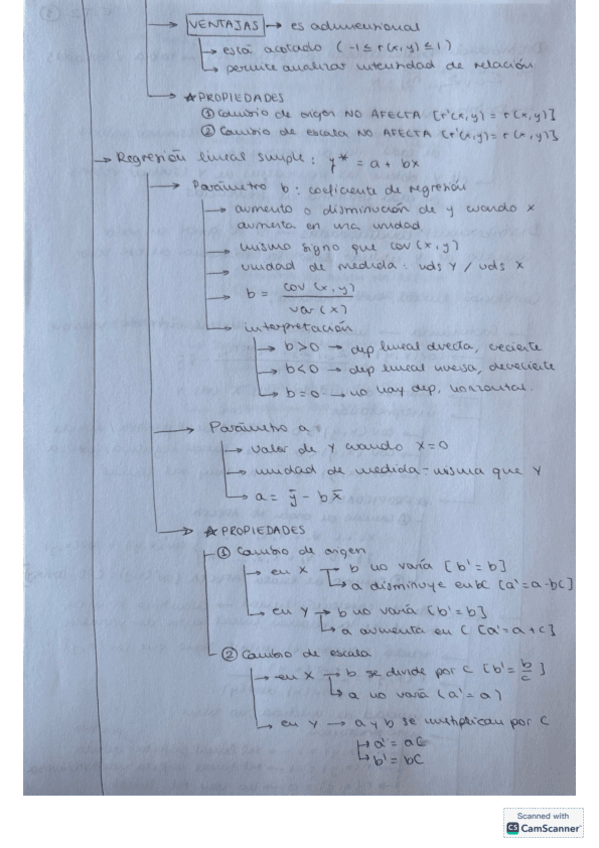 → VENTAJAS → es adimensional
→ está acotado (-1 ≤ r(x,y) ≤ 1)
→ permite analizar intensidad de relación
→ ★ PROPIEDADES
① Cambio de origen NO AFECTA [r'(x,y) = r(x,y)]
② Cambio de escala NO AFECTA [r'(x,y) = r(x,y)]
→ Regresión lineal simple: y* = a + bx
→ Parámetro b: coeficiente de regresión
→ aumento o disminución de y cuando x
aumenta en una unidad
→ mismo signo que cov(x,y)
→ unidad de medida: uds Y / uds X
→ b = cov(x,y) / var(x)
→ interpretación
→ b>0 → dep lineal directa, creciente
→ b<0 → dep lineal inversa, decreciente
→ b=0 → no hay dep, horizontal.
→ Parámetro a:
→ valor de Y cuando X=0
→ unidad de medida = misma que Y
→ a = ȳ - bx̄
→ ★ PROPIEDADES
① Cambio de origen
→ en X → b no varía [b' = b]
→ a disminuye en bC [a' = a-bC]
→ en Y → b no varía [b' = b]
→ a aumenta en C [a' = a+c]
② Cambio de escala
→ en X → b se divide por c [b' = b/c]
→ a no varía (a' = a)
→ en Y → a y b se multiplican por C
→ a' = aC
→ b' = bC
Scanned with
CS CamScanner